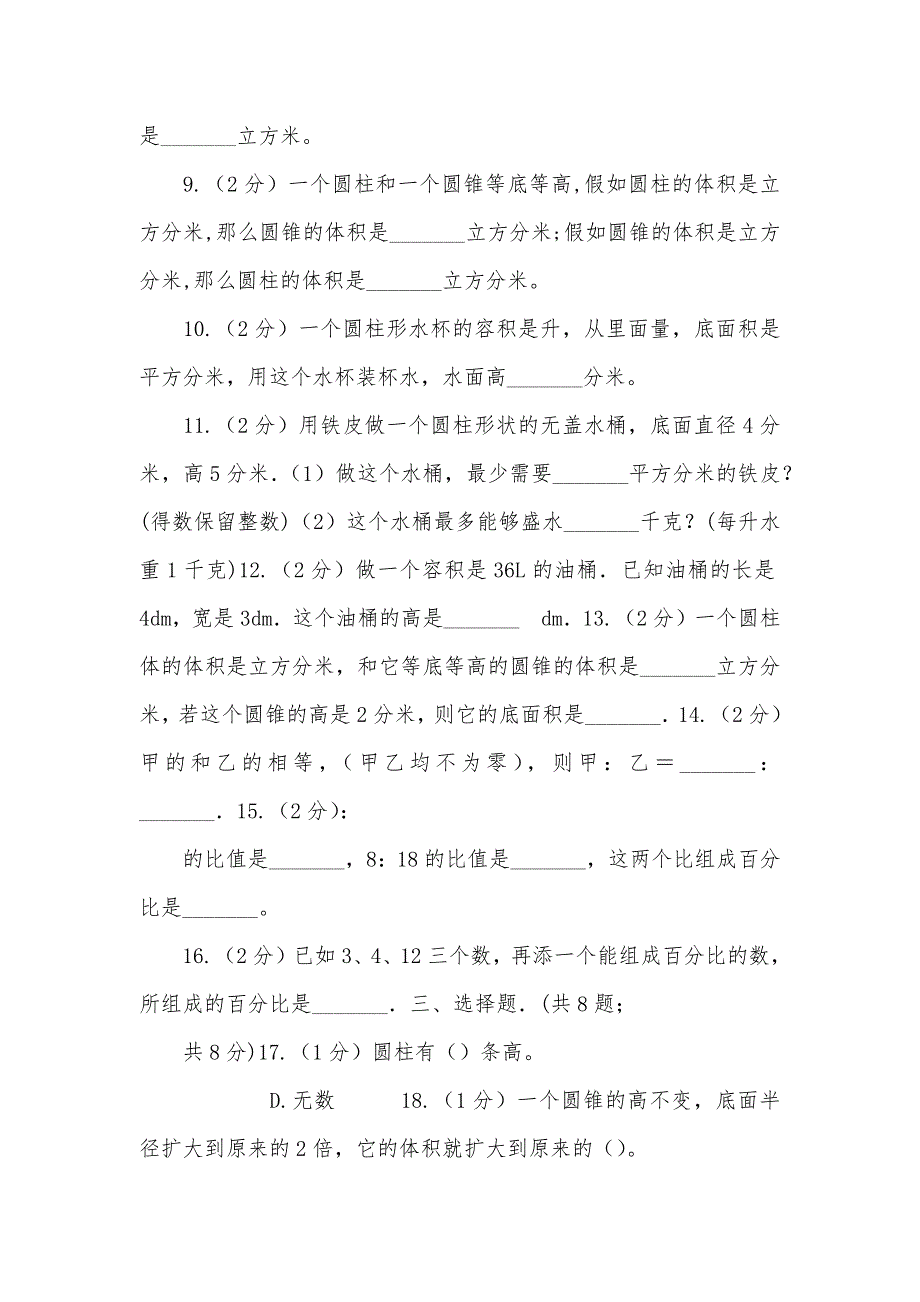 是_______立方米。
9.（2分）一个圆柱和一个圆锥等底等高,假如圆柱的体积是立
方分米,那么圆锥的体积是_______立方分米;假如圆锥的体积是立方
分米,那么圆柱的体积是_______立方分米。
10.（2分）一个圆柱形水杯的容积是升，从里面量，底面积是
平方分米，用这个水杯装杯水，水面高_______分米。
11.（2分）用铁皮做一个圆柱形状的无盖水桶，底面直径4分
米，高5分米．（1）做这个水桶，最少需要_______平方分米的铁皮？
(得数保留整数)（2）这个水桶最多能够盛水_______千克？(每升水
重1千克)12.（2分）做一个容积是36L的油桶．已知油桶的长是
4dm，宽是3dm．这个油桶的高是_______ dm．13.（2分）一个圆柱
体的体积是立方分米，和它等底等高的圆锥的体积是_______立方分
米，若这个圆锥的高是2分米，则它的底面积是_______．14.（2分）
甲的和乙的相等，（甲乙均不为零），则甲：乙＝_______：
_______．15.（2分）：
的比值是_______，8：18的比值是_______，这两个比组成百分
比是_______。
16.（2分）已如3、4、12三个数，再添一个能组成百分比的数，
所组成的百分比是_______．三、选择题．(共8题；
共8分)17.（1分）圆柱有（）条高。
D.无数 18.（1分）一个圆锥的高不变，底面半
径扩大到原来的2倍，它的体积就扩大到原来的（）。